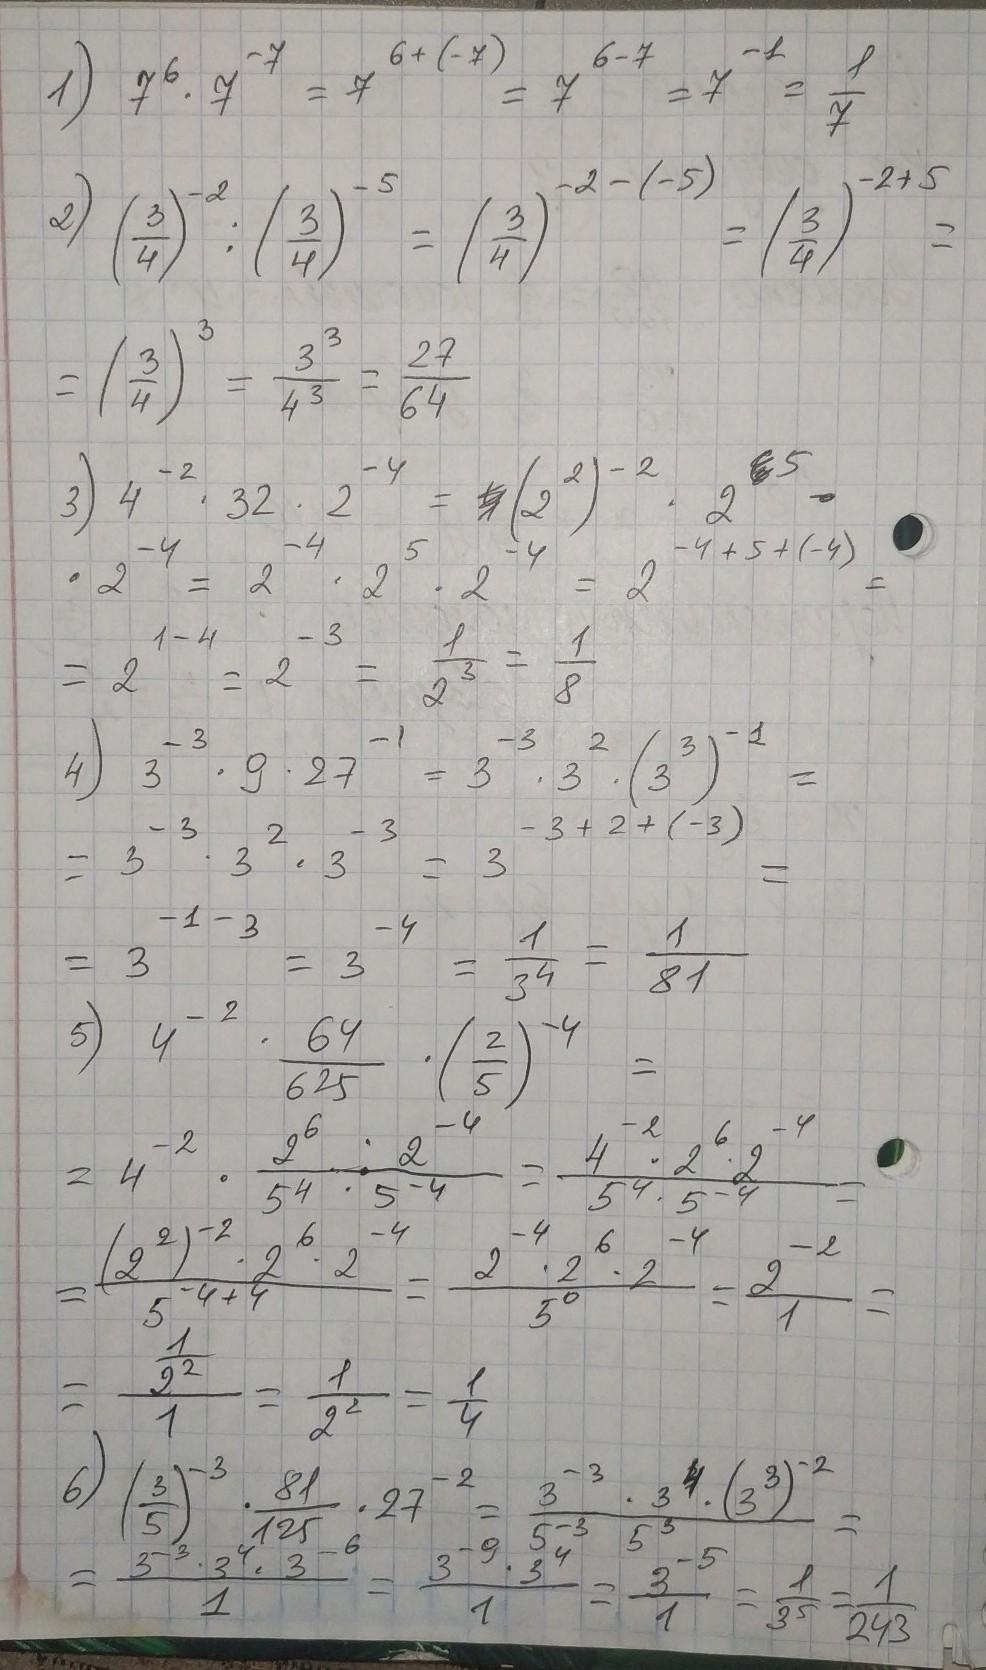 1) 7^6 · 7^{-7} = 7^{6+(-7)} = 7^{6-7} = 7^{-1} = \frac{1}{7}
2) (\frac{3}{4})^{-2} : (\frac{3}{4})^{-5} = (\frac{3}{4})^{-2-(-5)} = (\frac{3}{4})^{-2+5} =
= (\frac{3}{4})^3 = \frac{3^3}{4^3} = \frac{27}{64}
3) 4^{-2} · 32 · 2^{-4} = (2^2)^{-2} · 2^5 ·
· 2^{-4} = 2^{-4} · 2^5 · 2^{-4} = 2^{-4+5+(-4)} =
= 2^{1-4} = 2^{-3} = \frac{1}{2^3} = \frac{1}{8}
4) 3^{-3} · 9 · 27^{-1} = 3^{-3} · 3^2 · (3^3)^{-1} =
= 3^{-3} · 3^2 · 3^{-3} = 3^{-3+2+(-3)} =
= 3^{-1-3} = 3^{-4} = \frac{1}{3^4} = \frac{1}{81}
5) 4^{-2} · \frac{64}{625} · (\frac{2}{5})^{-4} =
= 4^{-2} · \frac{2^6 · 2^{-4}}{5^4 · 5^{-4}} = \frac{4^{-2} · 2^6 · 2^{-4}}{5^4 · 5^{-4}} =
= \frac{(2^2)^{-2} · 2^6 · 2^{-4}}{5^{-4+4}} = \frac{2^{-4} · 2^6 · 2^{-4}}{5^0} = \frac{2^{-2}}{1} =
= \frac{\frac{1}{2^2}}{1} = \frac{1}{2^2} = \frac{1}{4}
6) (\frac{3}{5})^{-3} · \frac{81}{125} · 27^{-2} = \frac{3^{-3} · 3^4 · (3^3)^{-2}}{5^{-3} 5^3} =
= \frac{3^{-3} · 3^4 · 3^{-6}}{1} = \frac{3^{-9} · 3^4}{1} = \frac{3^{-5}}{1} = \frac{1}{3^5} = \frac{1}{243}